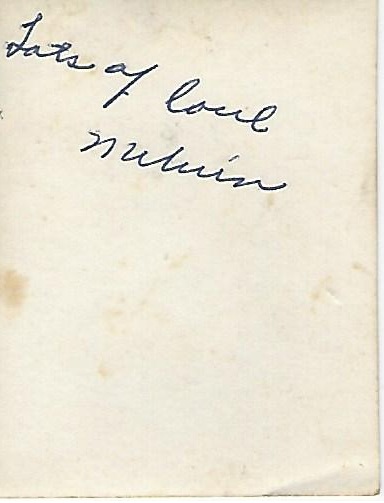 Lots of love
Melvin